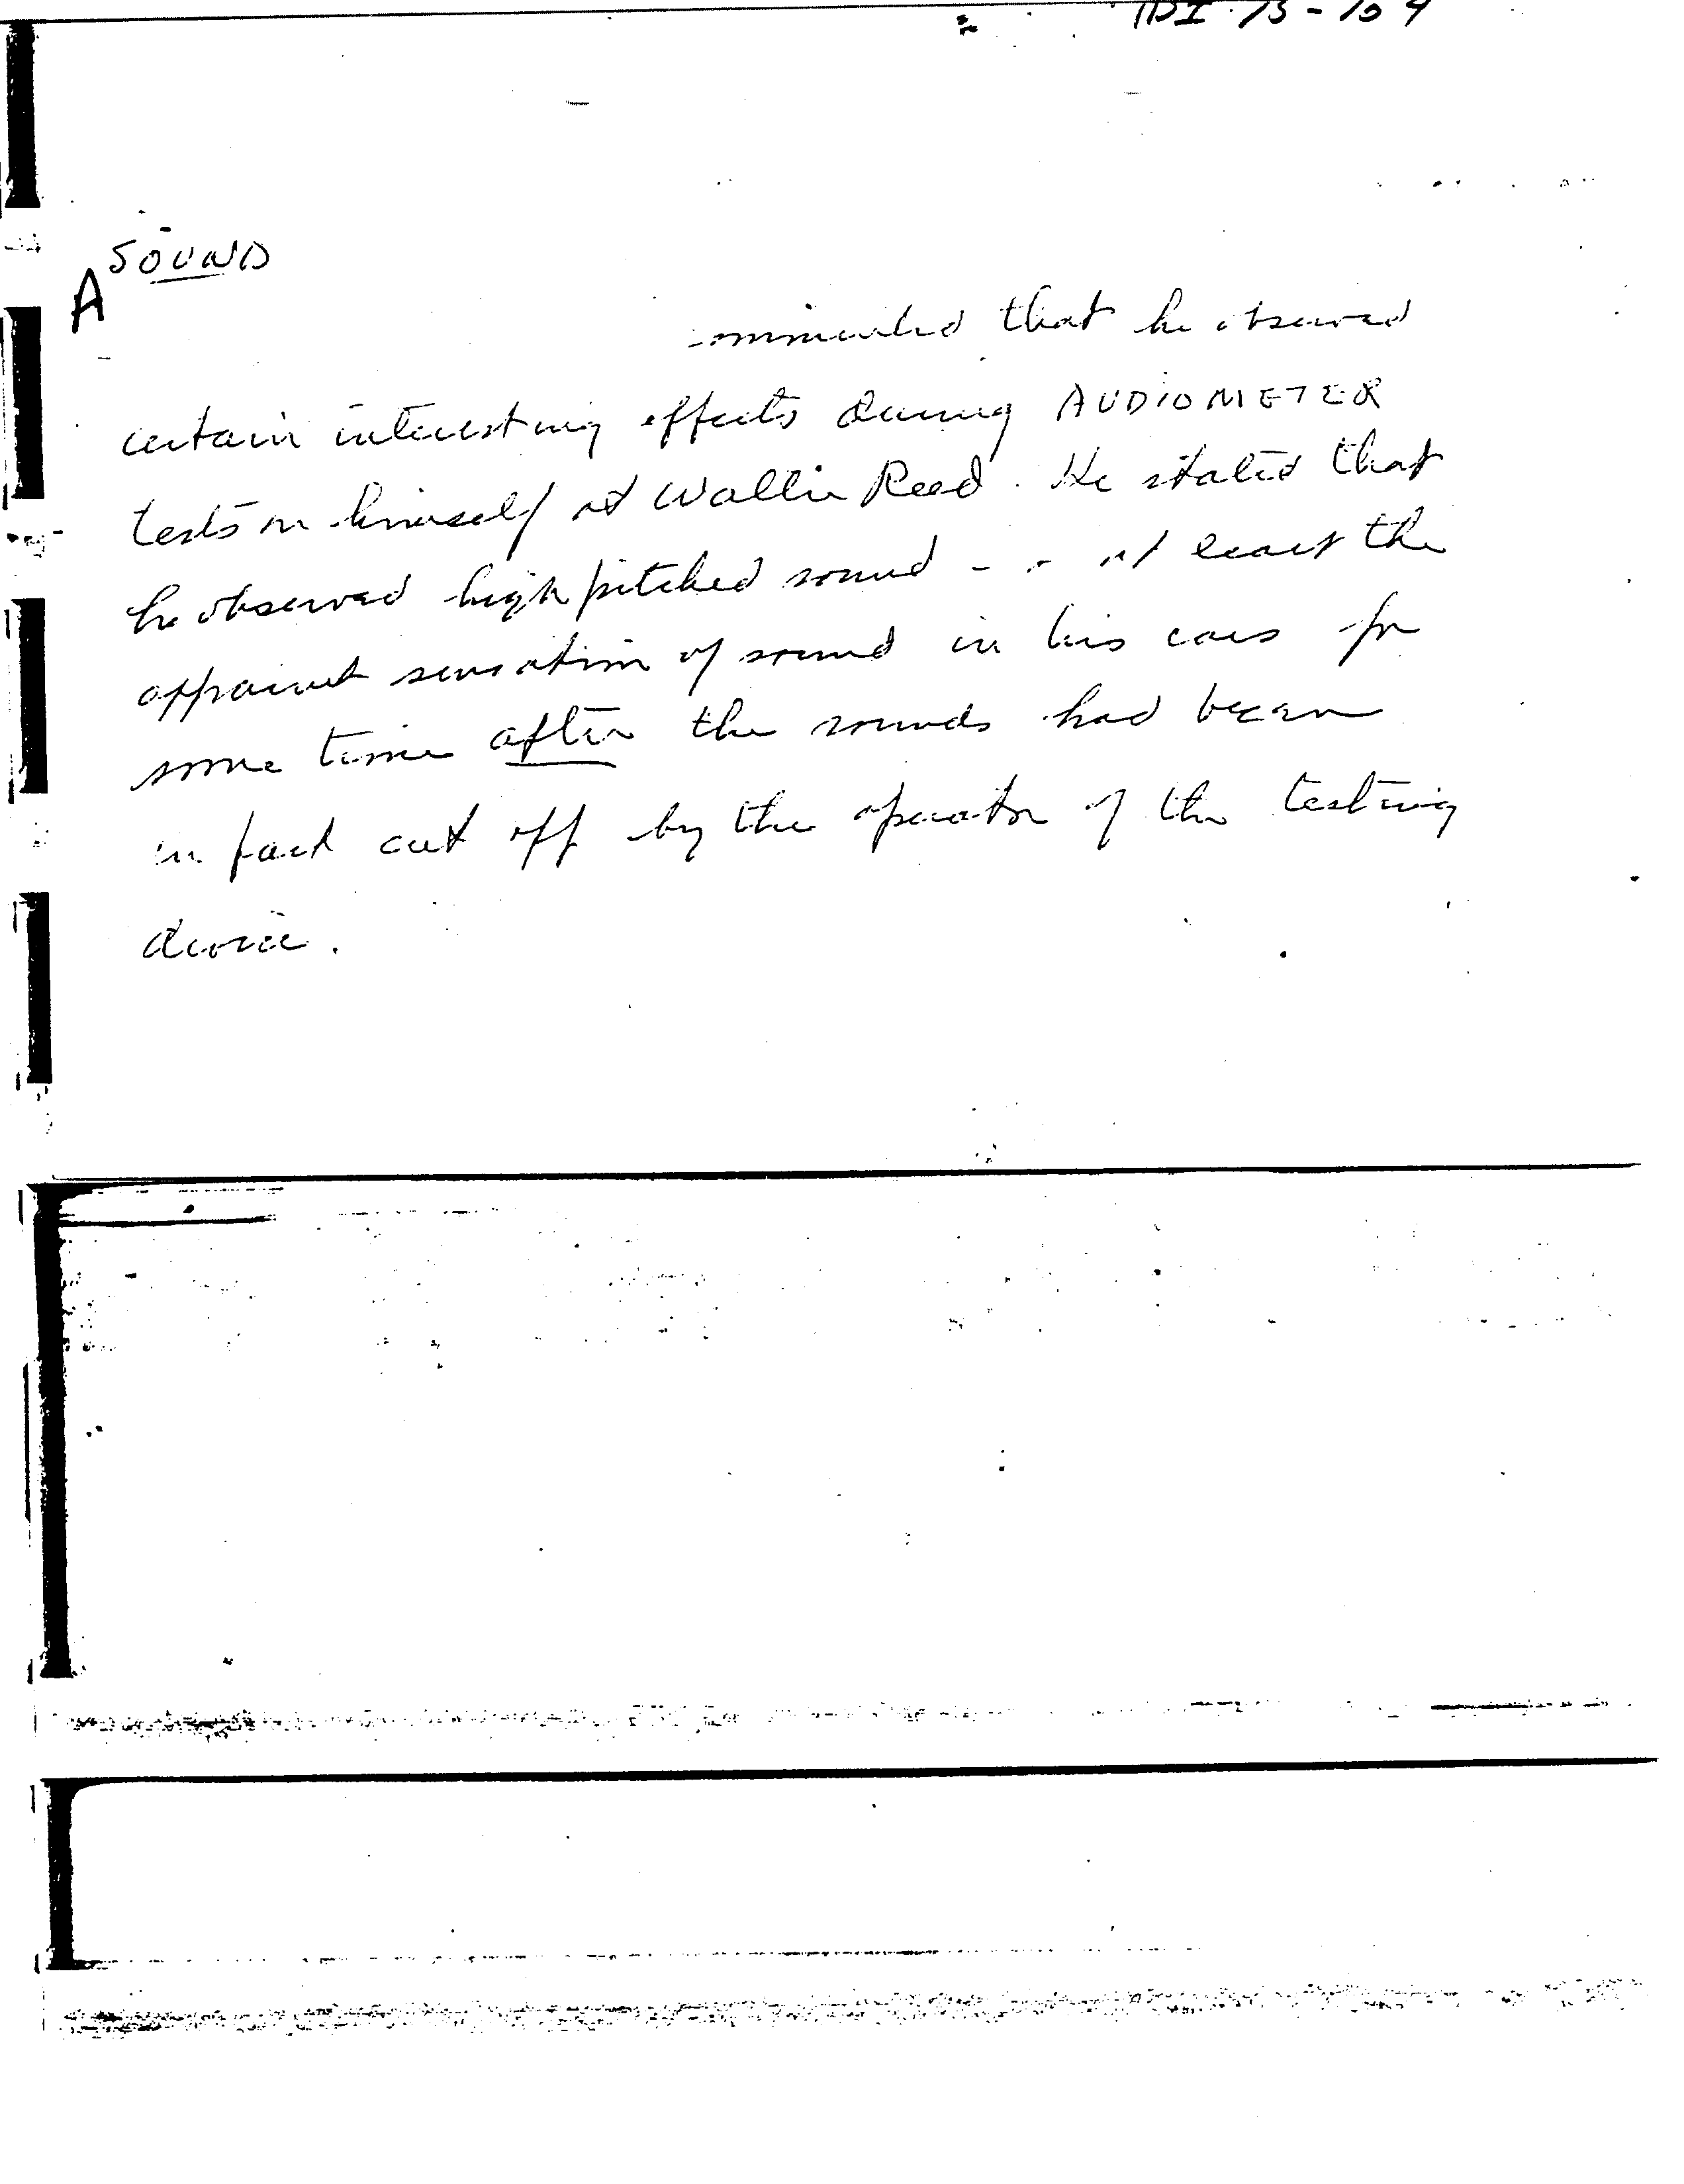 15-104
SOUND
A
commented that he observed
certain interesting effects during AUDIOMETER
tests on himself at Walter Reed. He stated that
he observed high pitched sound - - at least the
apparent sensation of sound in his ears for
some time after the sounds had been
in fact cut off by the operator of the testing
device.